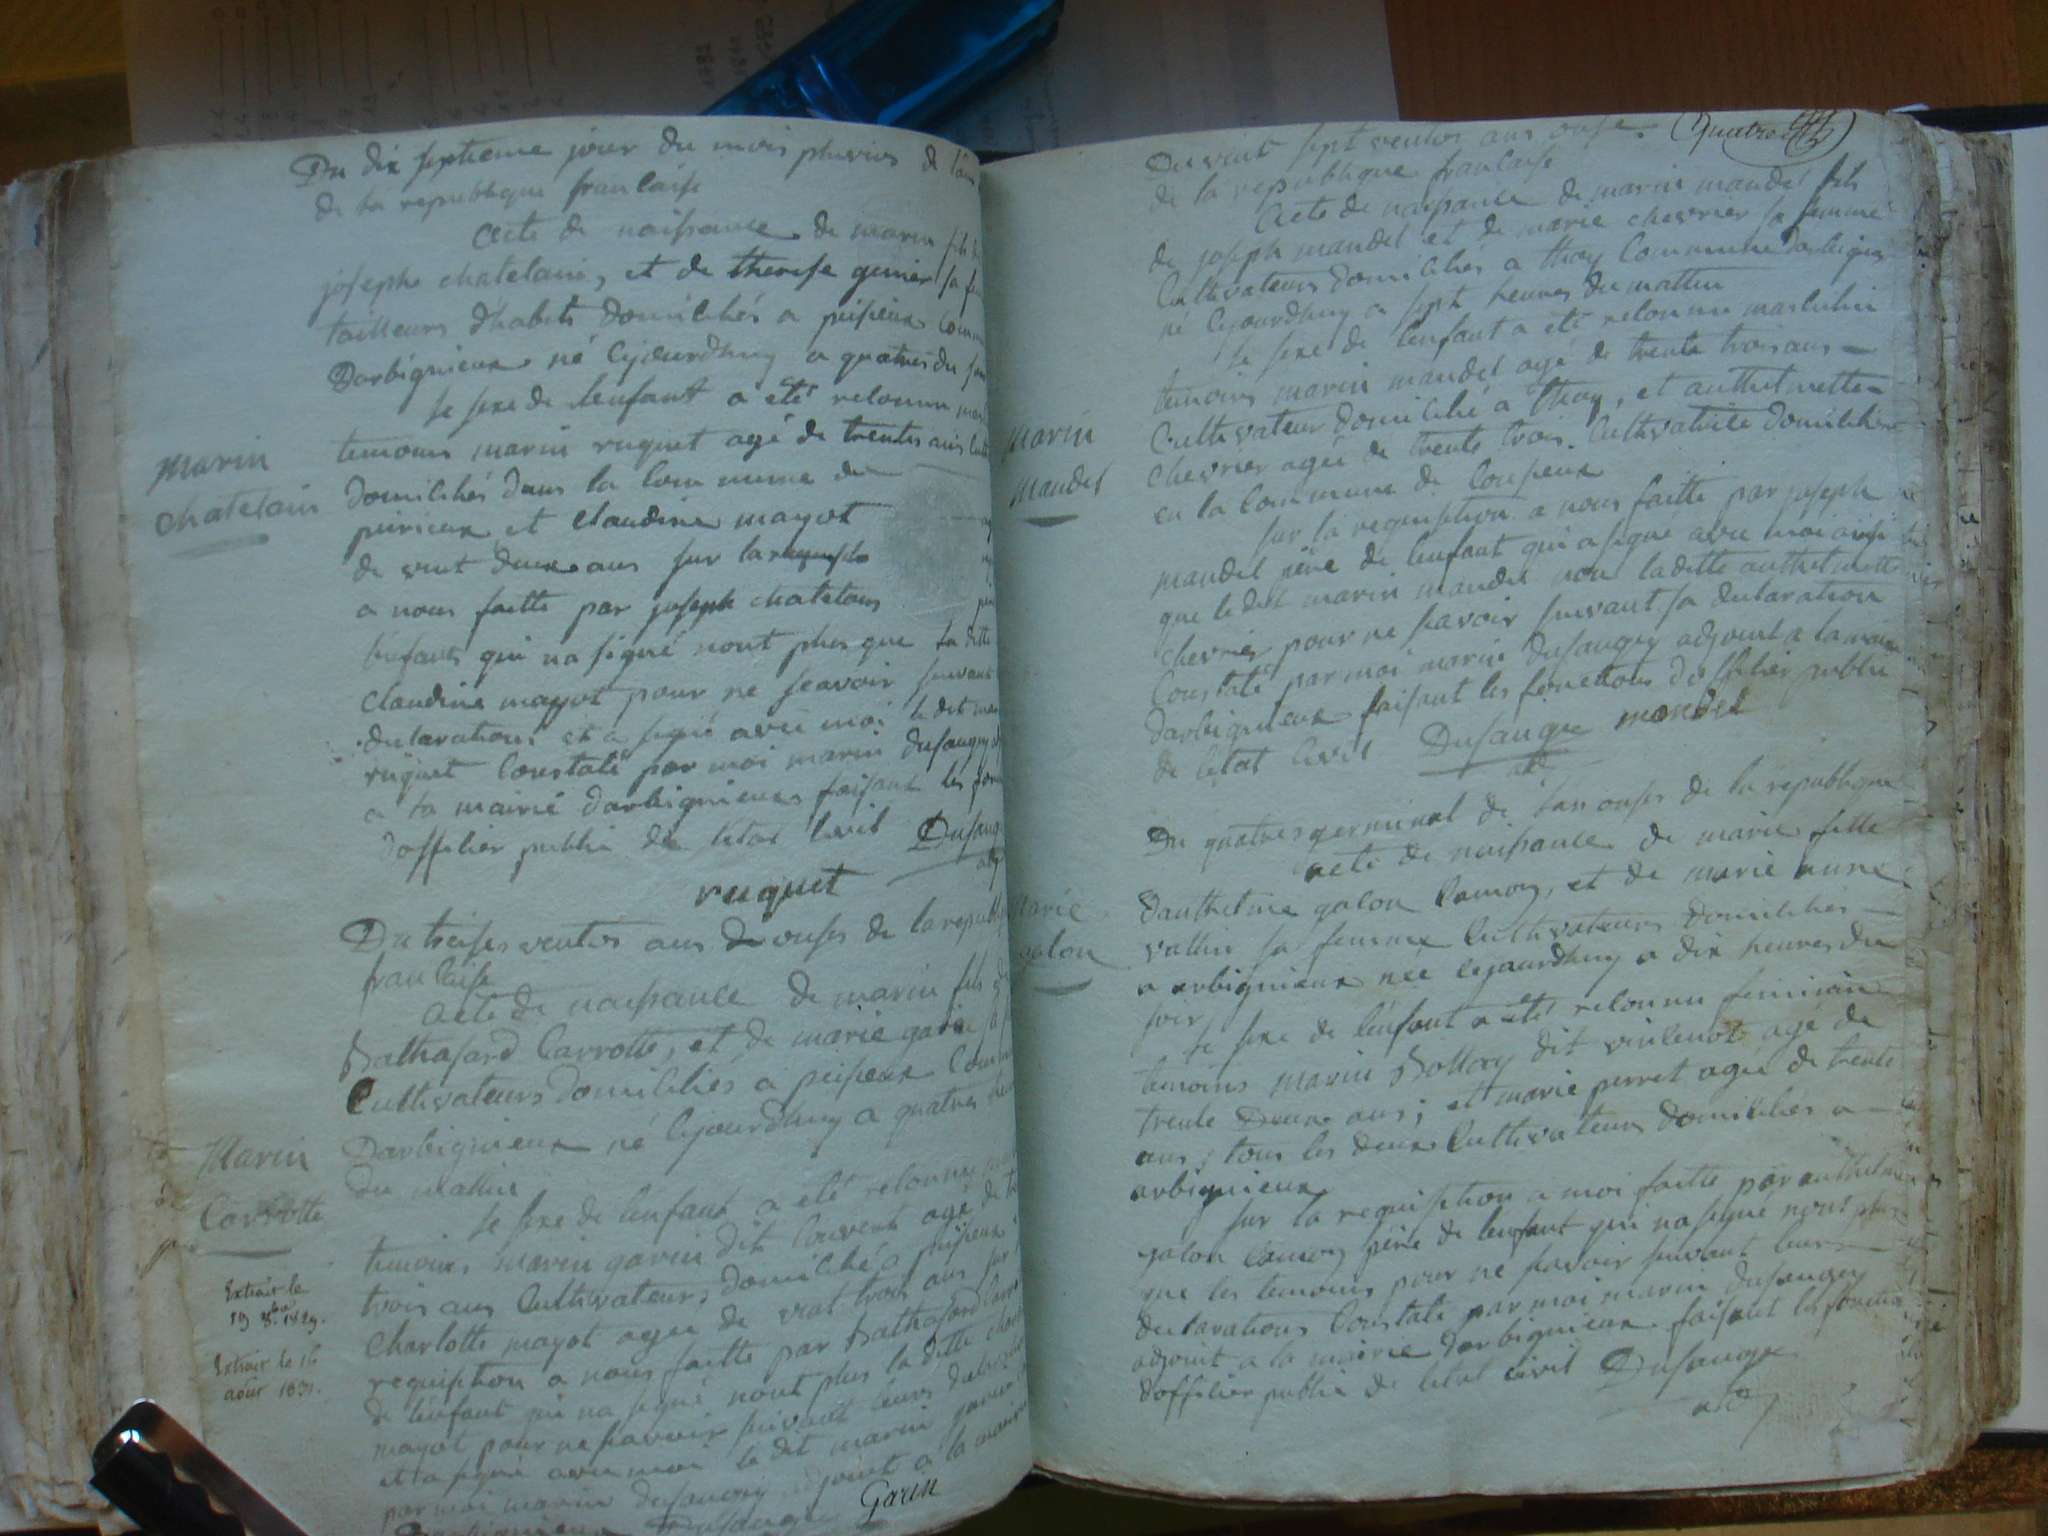 Du dix septieme jour du mois pluvios de l'an
de la republique francaise
acte de naissance de marin fils
joseph chatelain, et de therese genier sa
tailleurs d'habits domiciliés a peisieux
Darbignieux né cejourdhuy a quatres du
le sexe de lenfant a eté reconnu
temoins marin ruquet agé de trentes ans
Marin
chatelain
domiciliés dans la commune de
peisieux et claudine mayot
de vint deux ans sur la
a nous faitte par joseph chatelain
qui na signé nont plus que la ditte
claudine mayot pour ne scavoir suivant
declarations et a signé avec moi le dit
ruquet Constaté par moi marin dusaugey
a la mairie darbignieux faisant les
dofficier public de létat civil Dusaug
adj
ruquet
Du treises ventos ans onses de la republ
francaise
acte de naissance de marin fils
Balthasard Carrotte, et de marie garin
Cultivateurs domiciliés a peisieux
Darbignieux né cejourdhuy a quatres
du mattin
Marin
Carrotte
le sexe de lenfant a eté reconnu
temoins marin garin dit Couvent agé de
trois ans Cultivateurs domicilié a peisieux
Charlotte mayot agee de vint trois ans sur
requisition a nous faitte par Balthasard
de lenfant qui na signé nont plus la ditte
mayot pour ne scavoir suivant leurs
et a signé avec moi le dit marin
par moi marin Dusaugey adjoint a la mairie
Dusaugey Garin
Extrait le
19 8.bre 1829.
Extrait le 16
août 1831.
Du vint sept ventos ans onse
de la republique francaise
acte de naissance de marin mandel fils
de joseph mandel et de marie chevrier sa femme
Cultivateurs domiciliés a thoy Commune
né cejourdhuy a sept heures du mattin
le sexe de lenfant a eté reconnu masculin
temoins marin mandel agé de trente trois ans
Cultivateur domicilié a thoy, et anthelmette
Marin
Mandel
chevrier agée de trente trois Cultivatrice domiciliée
en la commune de
sur la requisition a nous faitte par joseph
mandel pére de lenfant qui a signé avec moi ainsi
que le dit marin mandel non laditte anthelmette
chevrier pour ne scavoir suivant sa declaration
Constaté par moi marin Dusaugey adjoint a la mairie
darbignieux faisant les fonctions dofficier public
de létat civil Dusauge mandel
adj
Du quatres germinal de lan onses de la republique
acte de naissance de marie fille
danthelme galon et de marie anne
Marie
galon
vallin sa femme Cultivateurs domiciliés
a arbignieux née cejourdhuy a dix heures du
soir
le sexe de lenfant a eté reconnu feminain
temoins marin Bollay dit vinlenot agé de
trente Deux ans; et marie perret agée de trente
ans, tous les deux Cultivateurs domiciliés a
arbignieux
sur la requisition a moi faitte par anthelme
galon pére de lenfant qui na signé nont plus
que les temoins pour ne scavoir suivant leurs
declarations Constaté par moi marin dusaugey
adjoint a la mairie darbignieux faisant les
dofficier public de létat civil Dusauge
adj